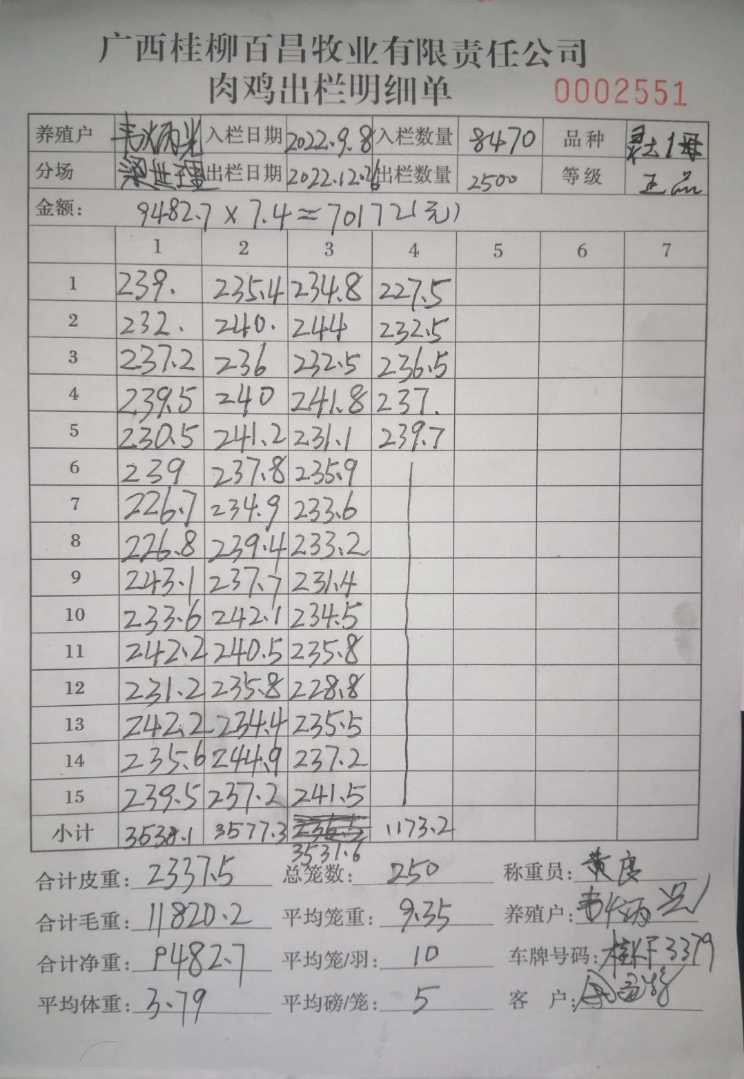 广西桂柳百昌牧业有限责任公司
肉鸡出栏明细单 0002551
养殖户 韦 炳光 入栏日期 2022.9.8 入栏数量 8470 品种 1母
分场 梁世理 出栏日期 2022.12.26 出栏数量 2500 等级 正品
金额: 9482.7 × 7.4 ≈ 70172(元)
1 2 3 4 5 6 7
1 239. 235.4 234.8 227.5
2 232. 240. 244 232.5
3 237.2 236 232.5 236.5
4 239.5 240 241.8 237.
5 230.5 241.2 231.1 239.7
6 239 237.8 235.9
7 226.7 234.9 233.6
8 226.8 239.4 233.2
9 243.1 237.7 231.4
10 233.6 242.1 234.5
11 242.2 240.5 235.8
12 231.2 235.8 228.8
13 242.2 234.4 235.5
14 235.6 244.9 237.2
15 239.5 237.2 241.5
小计 3538.1 3577.3 1173.2
3531.6
合计皮重: 2337.5 总笼数: 250 称重员: 黄
合计毛重: 11820.2 平均笼重: 9.35 养殖户: 韦 炳光
合计净重: 9482.7 平均笼/羽: 10 车牌号码: 3379
平均体重: 3.79 平均磅/笼: 5 客 户: